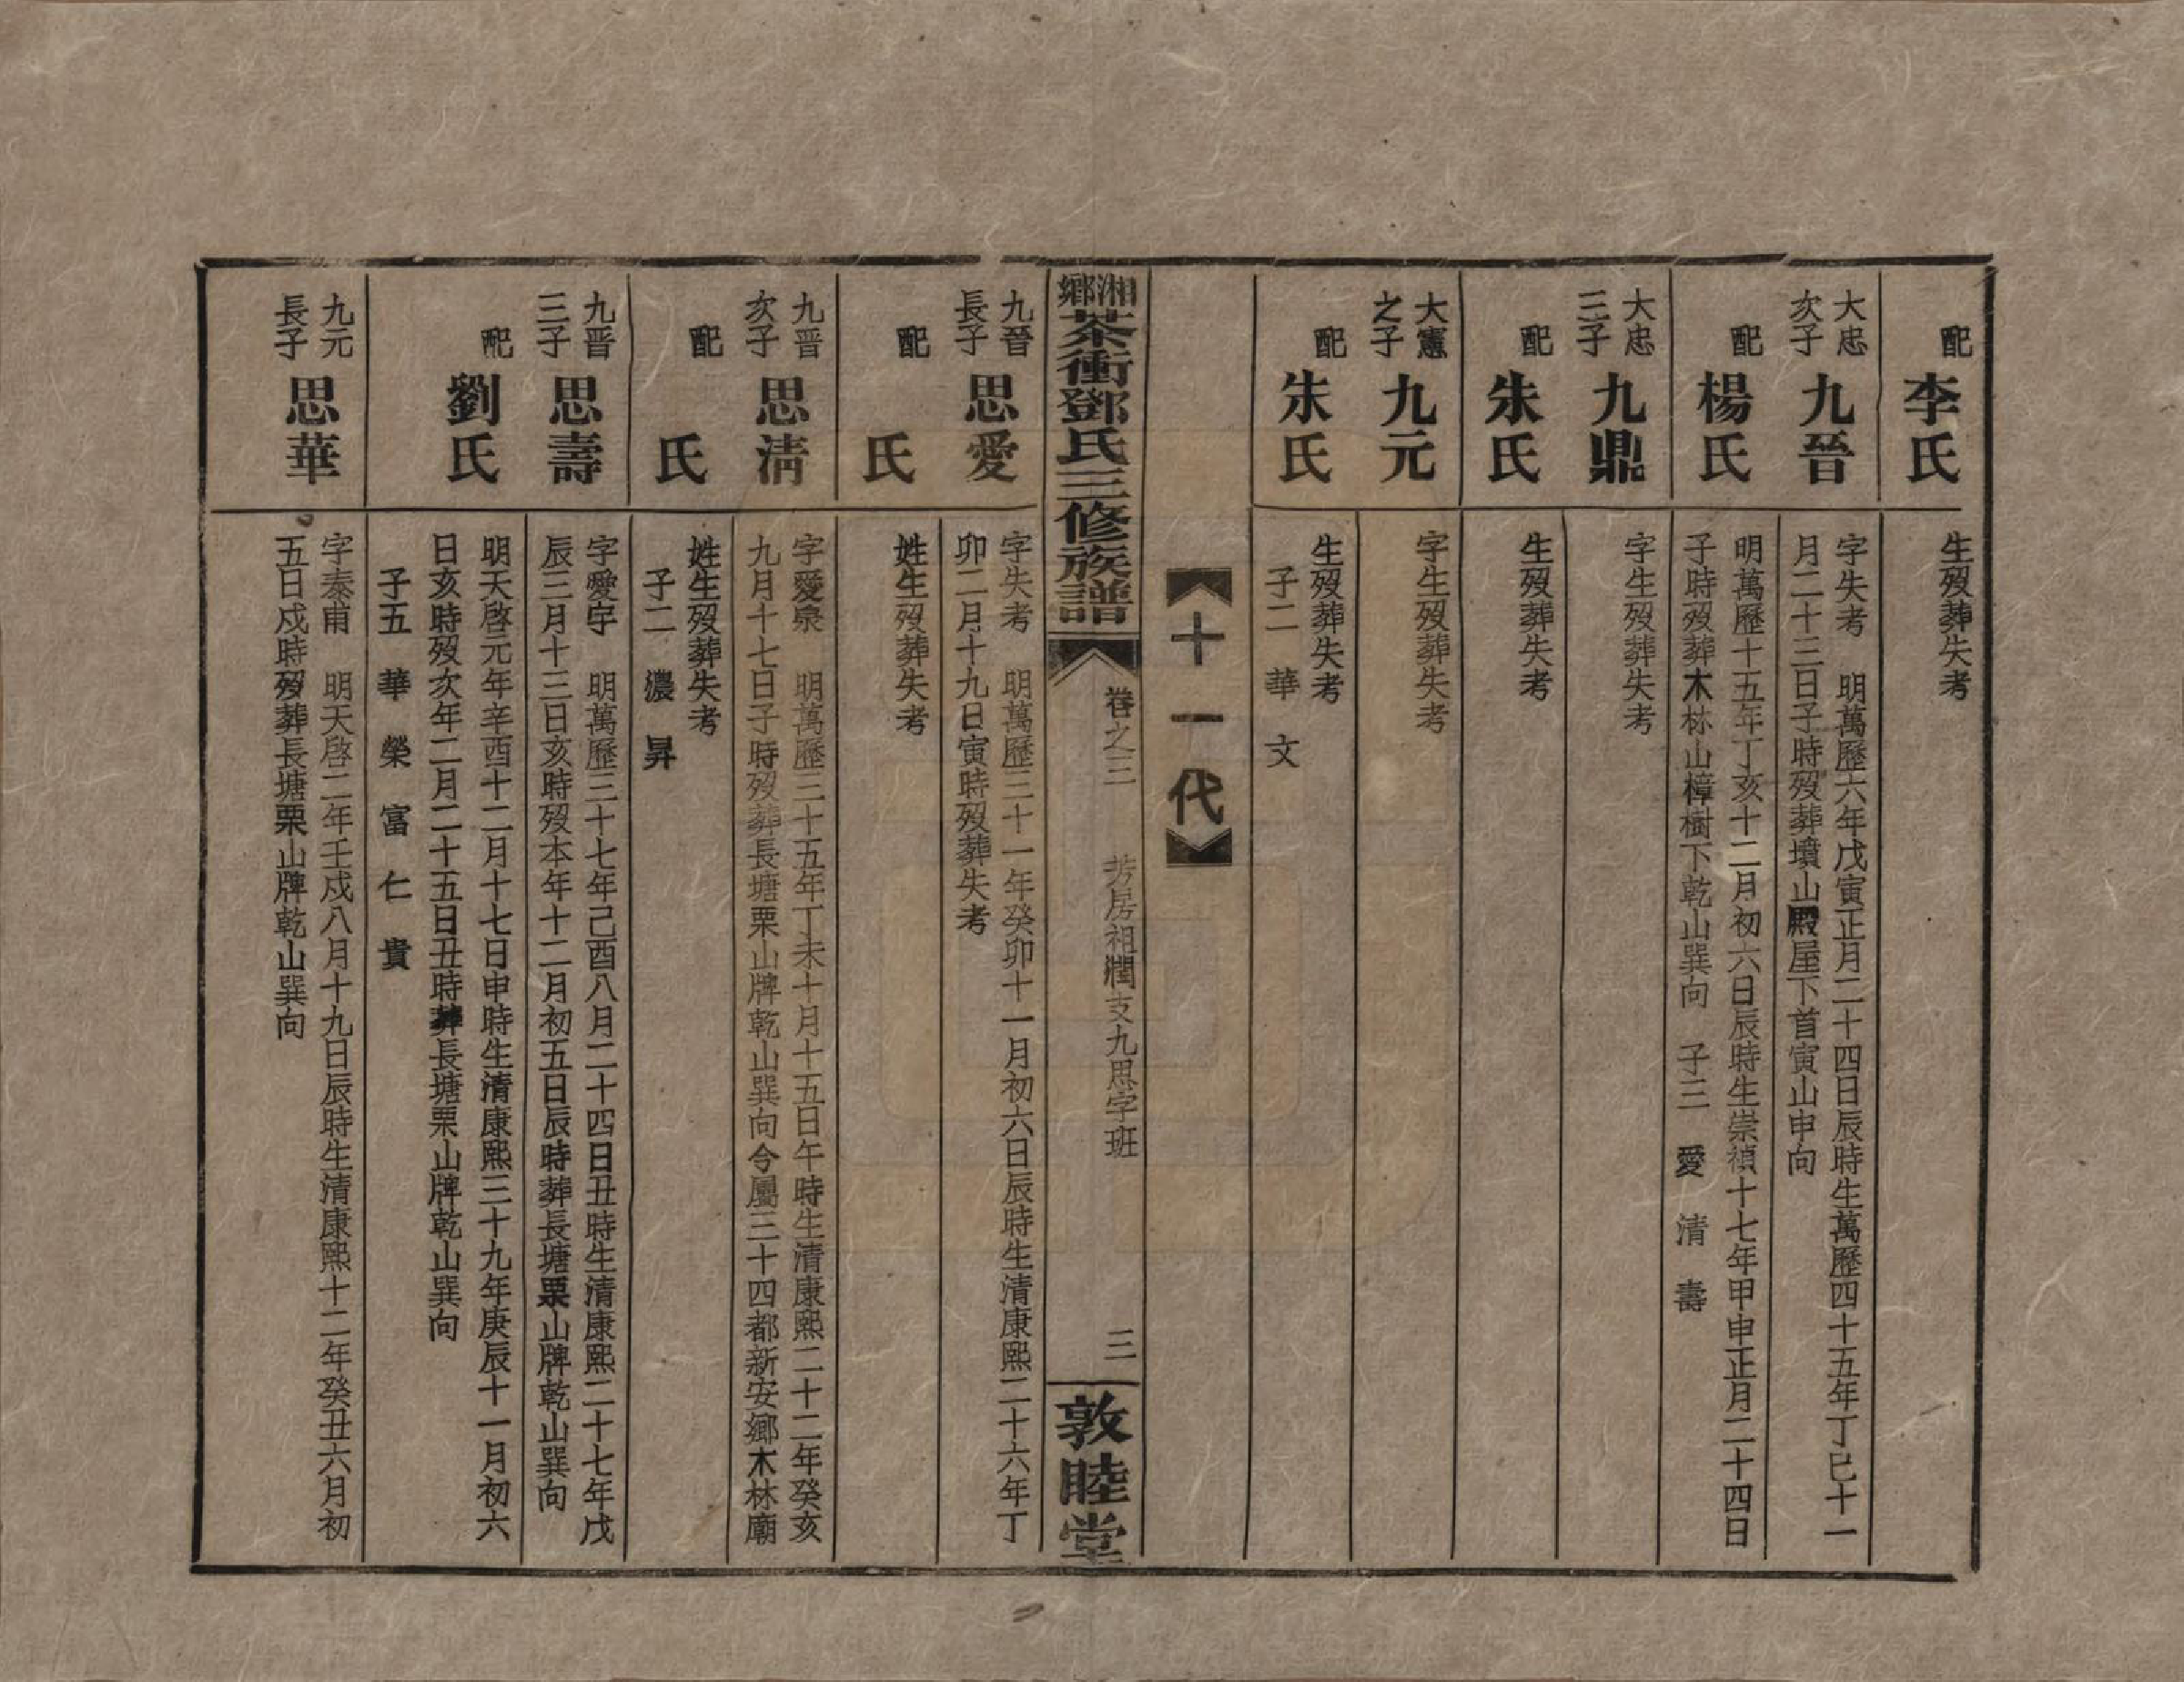 配
李氏
生歿葬失考
大忠
次子
九晉
字失考　明萬歷六年戊寅正月二十四日辰時生萬歷四十五年丁巳十一
月二十三日子時歿葬墳山殿屋下首寅山申向
配
楊氏
明萬歷十五年丁亥十二月初六日辰時生崇禎十七年甲申正月二十四日
子時歿葬木林山樟樹下乾山巽向　子三　愛　清　壽
大忠
三子
九鼎
字生歿葬失考
配
朱氏
生歿葬失考
大憲
之子
九元
字生歿葬失考
配
朱氏
生歿葬失考
子二　華　文
十一代
湘鄉茶衝鄧氏三修族譜
卷之三　芳房祖潤支九思字班
三
敦睦堂
九晉
長子
思愛
字失考　明萬歷三十一年癸卯十一月初六日辰時生清康熙二十六年丁
卯二月十九日寅時歿葬失考
配
氏
姓生歿葬失考
九晉
次子
思清
字愛泉　明萬歷三十五年丁未十月十五日午時生清康熙二十二年癸亥
九月十七日子時歿葬長塘栗山牌乾山巽向今屬三十四都新安鄉木林廟
配
氏
姓生歿葬失考
子二　濃　昇
九晉
三子
思壽
字愛宇　明萬歷三十七年己酉八月二十四日丑時生清康熙二十七年戊
辰三月十三日亥時歿本年十二月初五日辰時葬長塘栗山牌乾山巽向
配
劉氏
明天啓元年辛酉十二月十七日申時生清康熙三十九年庚辰十一月初六
日亥時歿次年二月二十五日丑時葬長塘栗山牌乾山巽向
子五　華　榮　富　仁　貴
九元
長子
思華
字泰甫　明天啓二年壬戍八月十九日辰時生清康熙十二年癸丑六月初
五日戍時歿葬長塘栗山牌乾山巽向